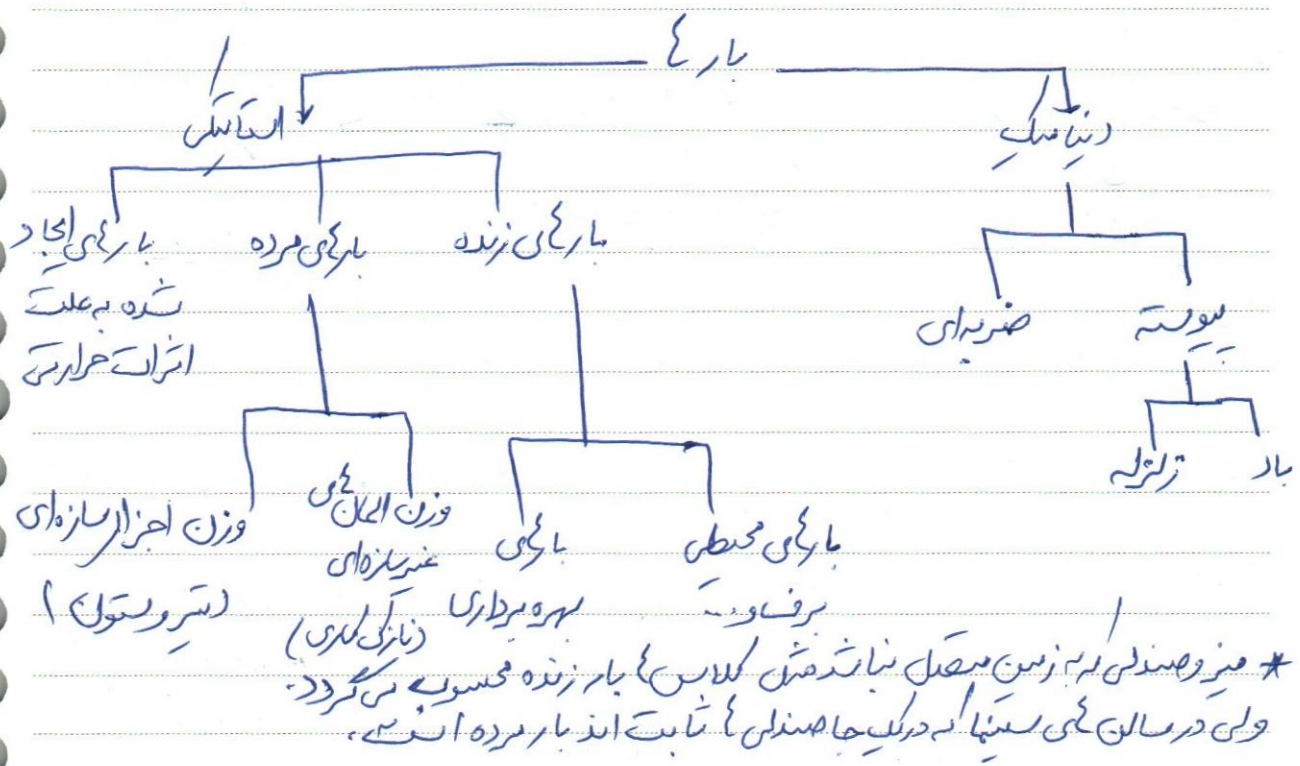 بارها
دینامیک
استاتیکی
بارهای زنده
بارهای مرده
بارهای ایجاد
شده به علت
اثرات حرارتی
پیوسته
ضربه‌ای
باد
زلزله
بارهای محیطی
برف و...
بارهای
بهره برداری
وزن المان های
غیرسازه‌ای
(نازک کاری)
وزن اجزاء سازه‌ای
(تیر و ستون)
* میز و صندلی که به زمین متصل نباشد مثل کلاس ها بار زنده محسوب می گردد.
ولی در سالن های سینما که در یک جا صندلی ها ثابت اند بار مرده است.